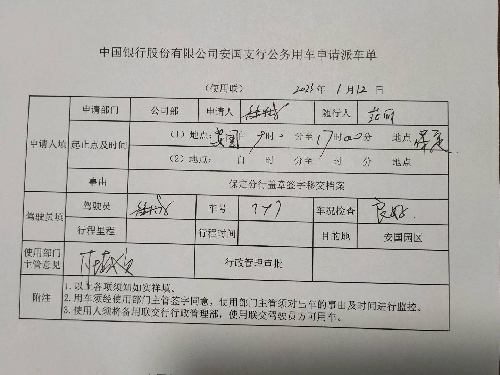 中国银行股份有限公司安国支行公务用车申请派车单
(使用联) 年 1月12日
申请人填 申请部门 公司部 申请人 随行人
起止点及时间 (1)地点: 安国 自 9时 分至17时00分 地点 保定
(2)地点: 自 时 分至 时 分 地点
事由 保定分行盖章签字移交档案
驾驶员填 驾驶员 车号 777 车况检查 良好
行程里程 行程时间 目的地 安国园区
使用部门主管意见 行政管理审批
附注 1.以上各项须知如实祥填。
2.用车须经使用部门主管签字同意，使用部门主管须对出车的事由及时间进行监控。
3.使用人须将备用联交行政管理部，使用联交驾驶员方可用车。